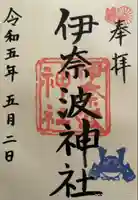 奉拝
伊奈波神社
令和五年五月二日